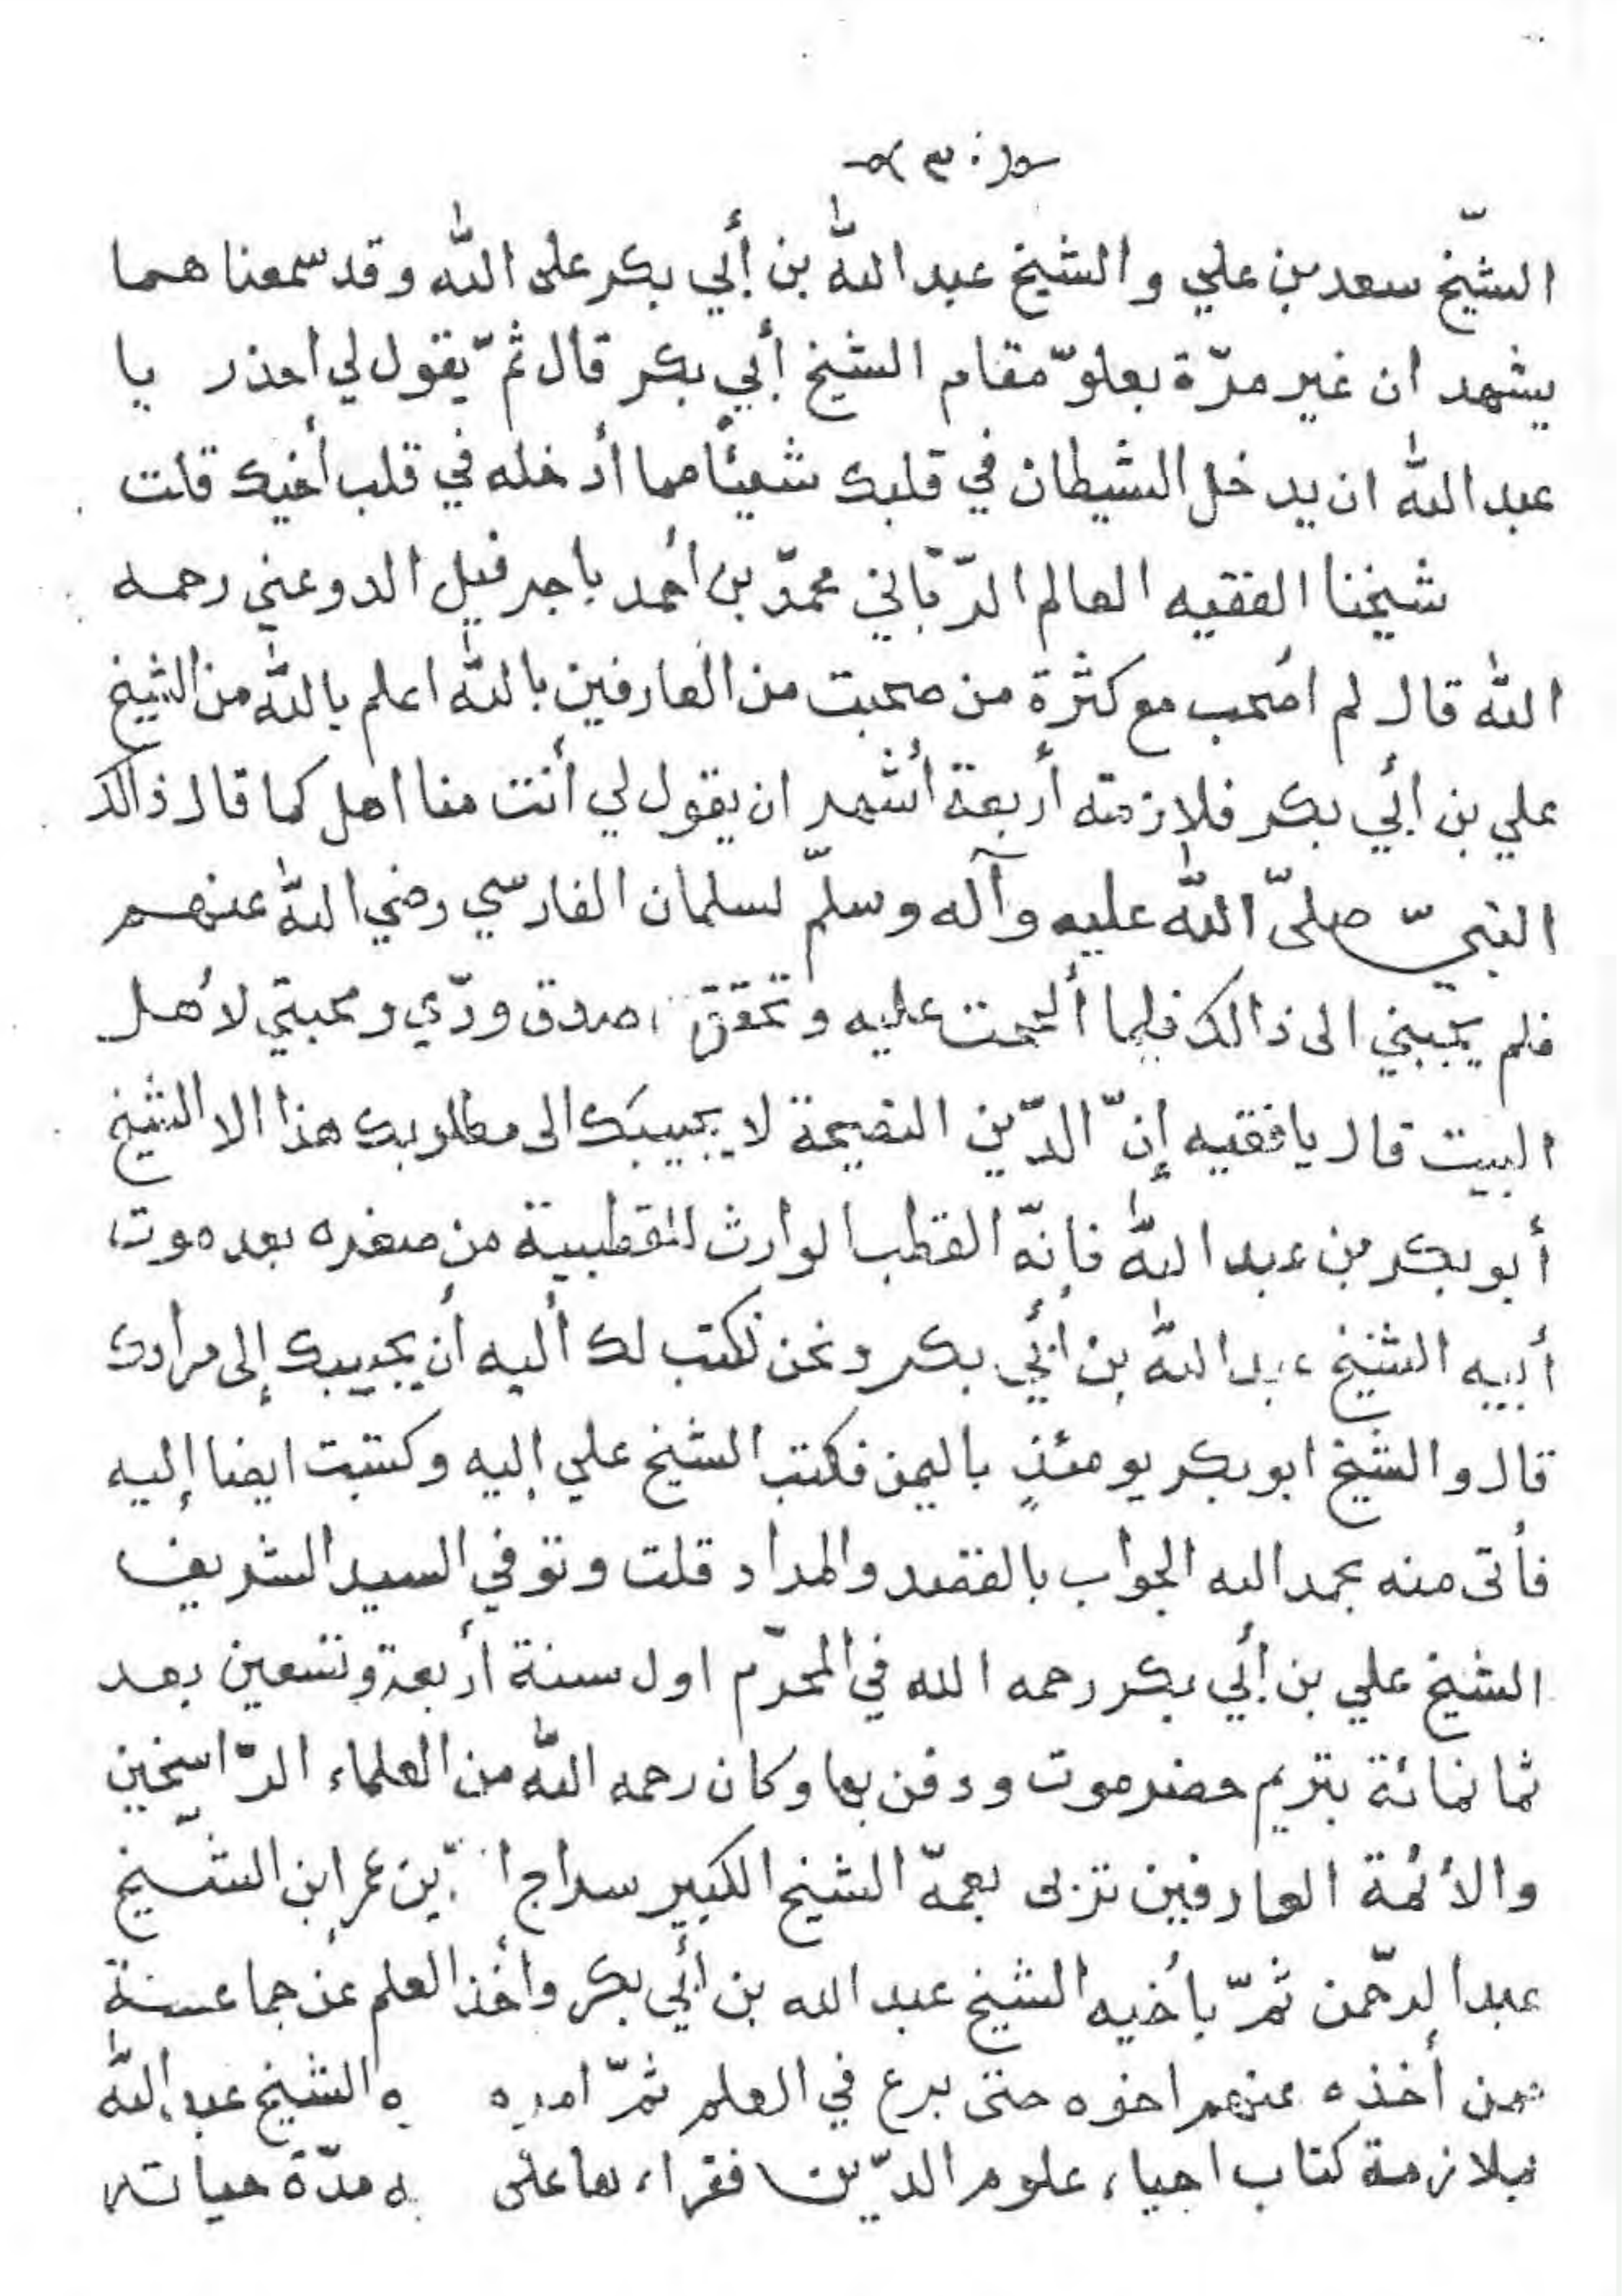 ٣٠
الشيّخ سعد بن علي والشيخ عبد اللّٰه بن أبي بكر على اللّٰه وقد سمعنا هما
يشهد ان غير مرّة بعلوّ مقام الشيخ أبي بكر قال ثمّ يقول لي احذر يا
عبد اللّٰه ان يدخل الشيطان في قلبك شيئًا مما أدخله في قلب أخيك قلت
شيخنا الفقيه العالم الرّبّاني محمّد بن أحمد باجرفيل الدوعني رحمه
اللّٰه قال لم اصحب مع كثرة من صحبت من العارفين باللّٰه اعلم باللّٰه من الشيخ
علي بن أبي بكر فلازمته أربعة أشهر ان يقول لي أنت منا اهل كما قال ذالك
النبيّ صلىّ اللّٰه عليه وآله وسلّم لسلمان الفارسي رضي اللّٰه عنهم
فلم يجبني الى ذالك فلما ألححت عليه وتحقق صدق ودّي ومحبتي لأهل
البيت قال يا فقيه إنّ الدّين النصيحة لا يجيبك الى مطلوبك هذا الا الشيخ
أبو بكر بن عبد اللّٰه فإنّه القطب الوارث للقطبية من صغره بعد موت
أبيه الشيخ عبد اللّٰه بن أبي بكر ونحن نكتب لك أليه أن يجيبك إلى مرادك
قال والشيخ ابو بكر يومئذٍ باليمن فكتب الشيخ علي إليه وكتبت ايضا إليه
فأتى منه بحمد الله الجواب بالقصد والمراد قلت وتوفي السيد الشريف
الشيخ علي بن أبي بكر رحمه الله في المحرّم اول سنة أربعة وتسعين بعد
ثمانمائة بتريم حضرموت ودفن بها وكان رحمه اللّٰه من العلماء الرّاسخين
والأئمة العارفين تربى بعمّه الشيخ الكبير سراج ا ّين عمر ابن الشّيخ
عبد الرّحمن ثمّ بأخيه الشيخ عبد الله بن أبي بكر وأخذ العلم عن جماعة
ممن أخذه عنهم اخوه حتى برع في العلم ثمّ امره الشيخ عبد اللّٰه
بملازمة كتاب احياء علوم الدّين فقراء ها على ه مدّة حياته